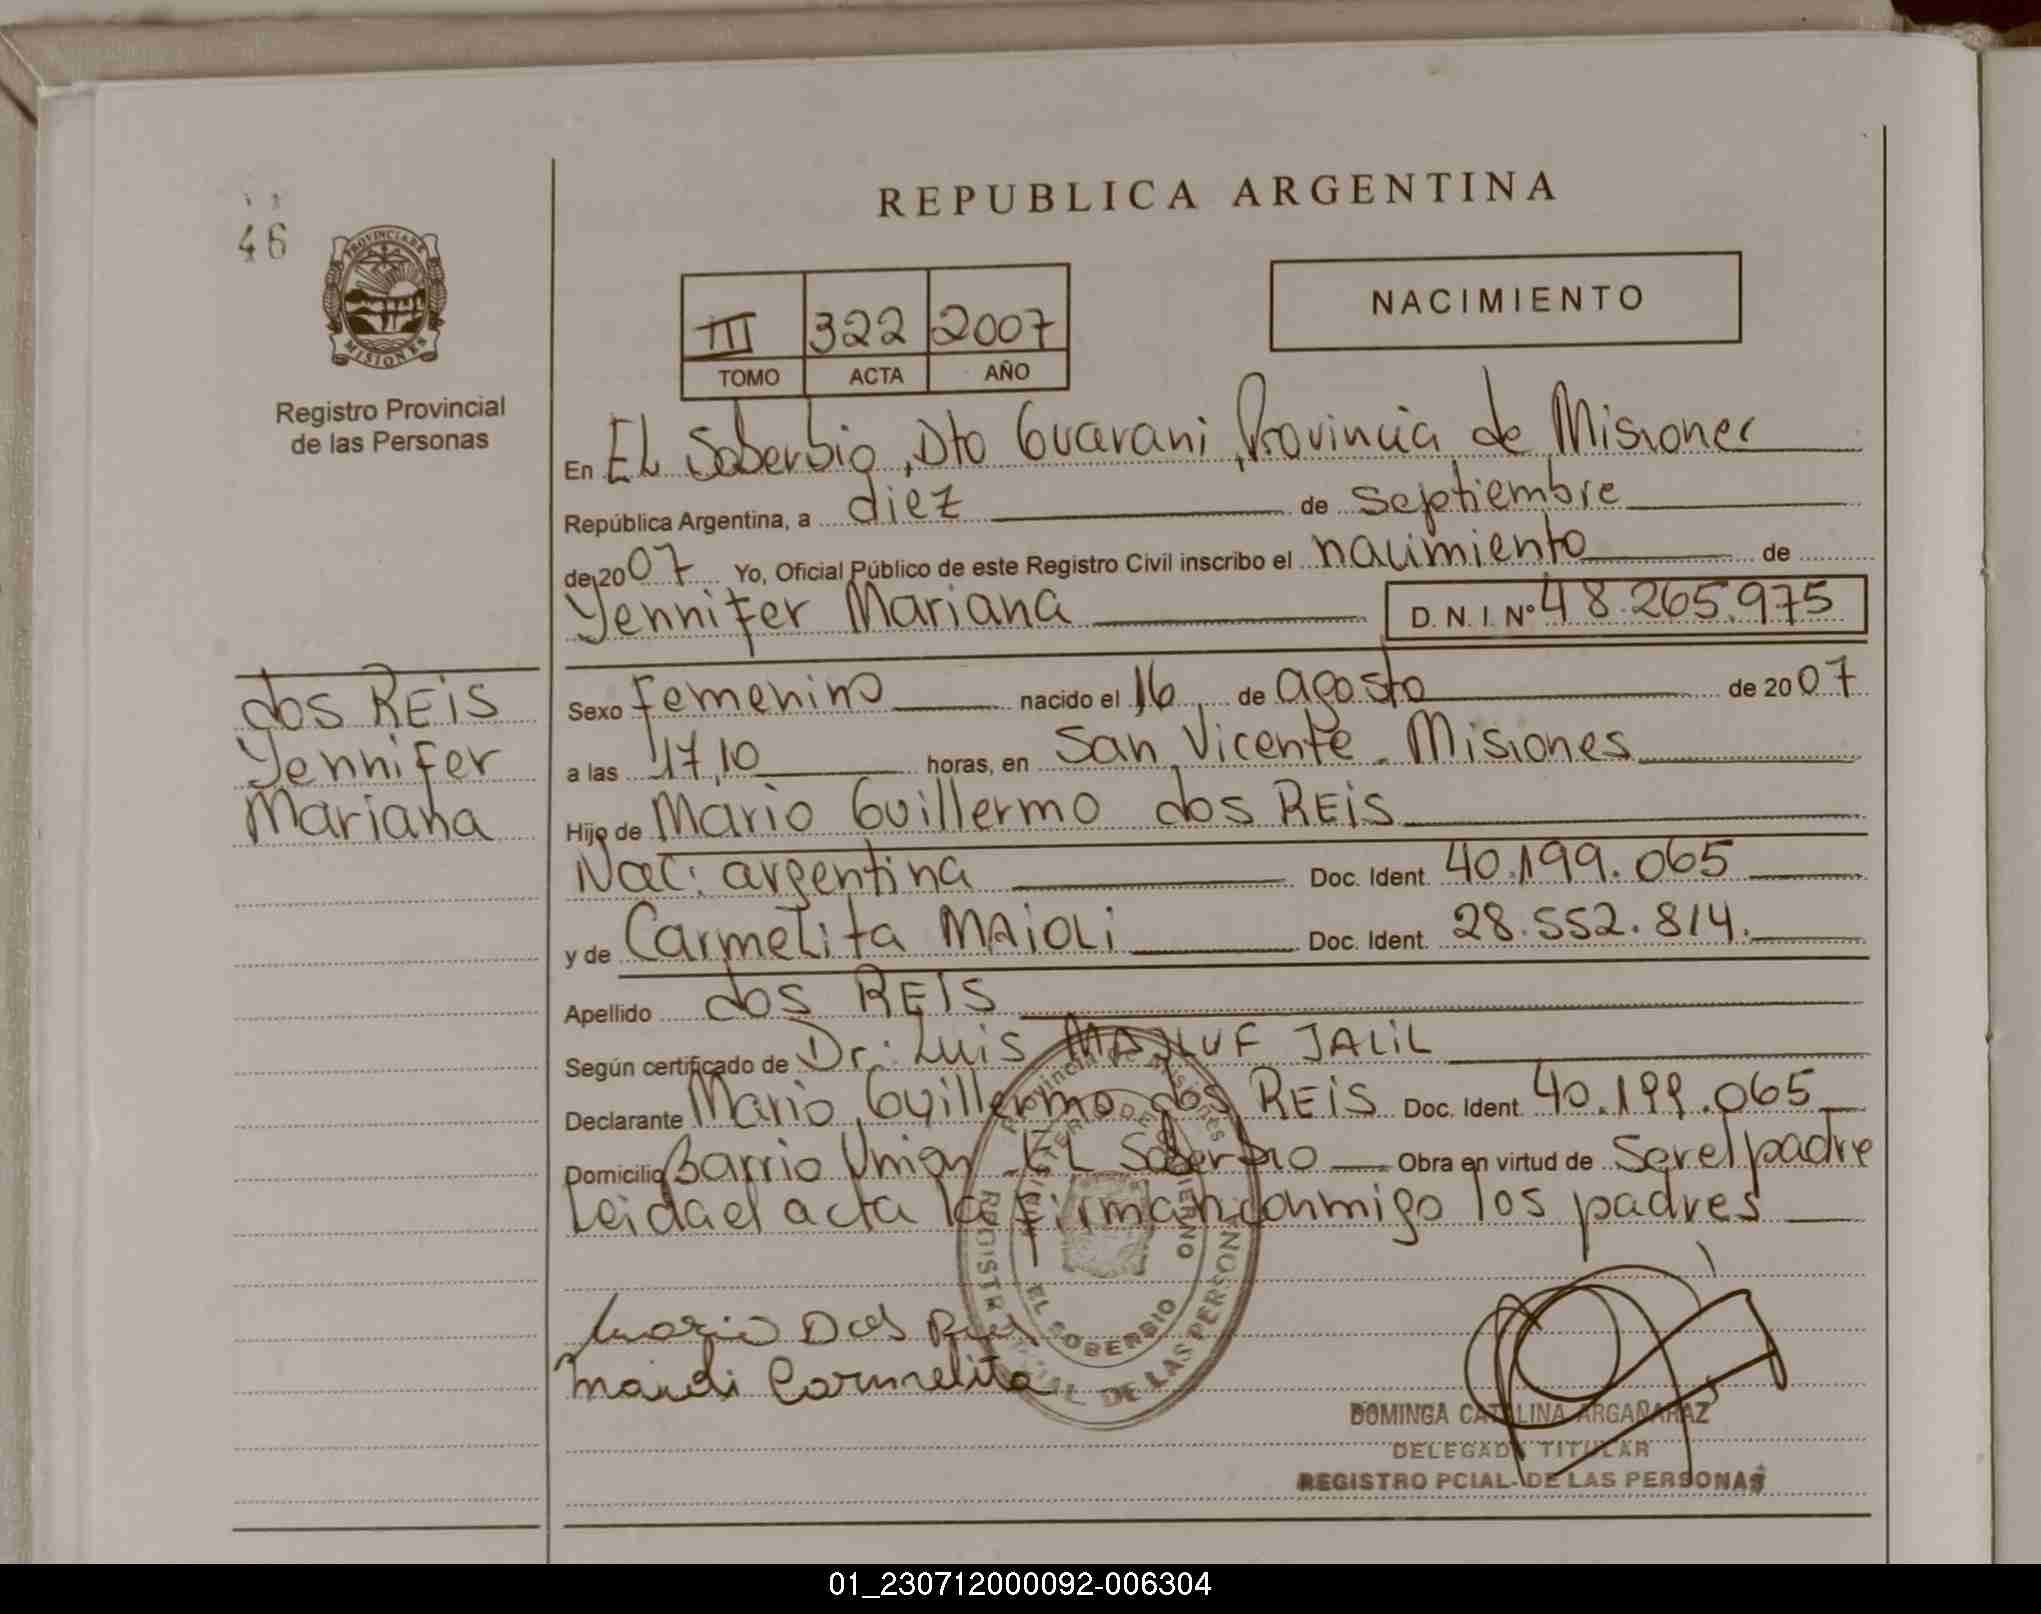 REPUBLICA ARGENTINA
46
PROVINCIA DE
MISIONES
Registro Provincial
de las Personas
III 322 2007
TOMO ACTA AÑO
NACIMIENTO
En EL Soberbio, Dto Guarani, Provincia de Misiones
República Argentina, a diez de septiembre
de 2007 Yo, Oficial Público de este Registro Civil inscribo el nacimiento de
Yennifer Mariana D. N. I. Nº 48.265.975
dos REIS
Yennifer
Mariana
Sexo Femenino nacido el 16 de agosto de 2007
a las 17,10 horas, en San Vicente - Misiones
Hijo de Mario Guillermo dos REIS
Nac: argentina Doc. Ident. 40.199.065
y de Carmelita MAIOLI Doc. Ident. 28.552.814.
Apellido dos REIS
Según certificado de Dr: Luis MAJLUF JALIL
Declarante Mario Guillermo dos REIS Doc. Ident. 40.199.065
Domicilio Barrio Union - EL Soberbio Obra en virtud de Ser el padre
Leida el acta la firman conmigo los padres
Provincia de Misiones
MINISTERIO DE GOBIERNO
EL SOBERBIO
REGISTRO PROVINCIAL DE LAS PERSONAS
Mario Dos Reis
Maioli Carmelita
DOMINGA CATALINA ARGAÑARAZ
DELEGADA TITULAR
REGISTRO PCIAL. DE LAS PERSONAS
01_230712000092-006304